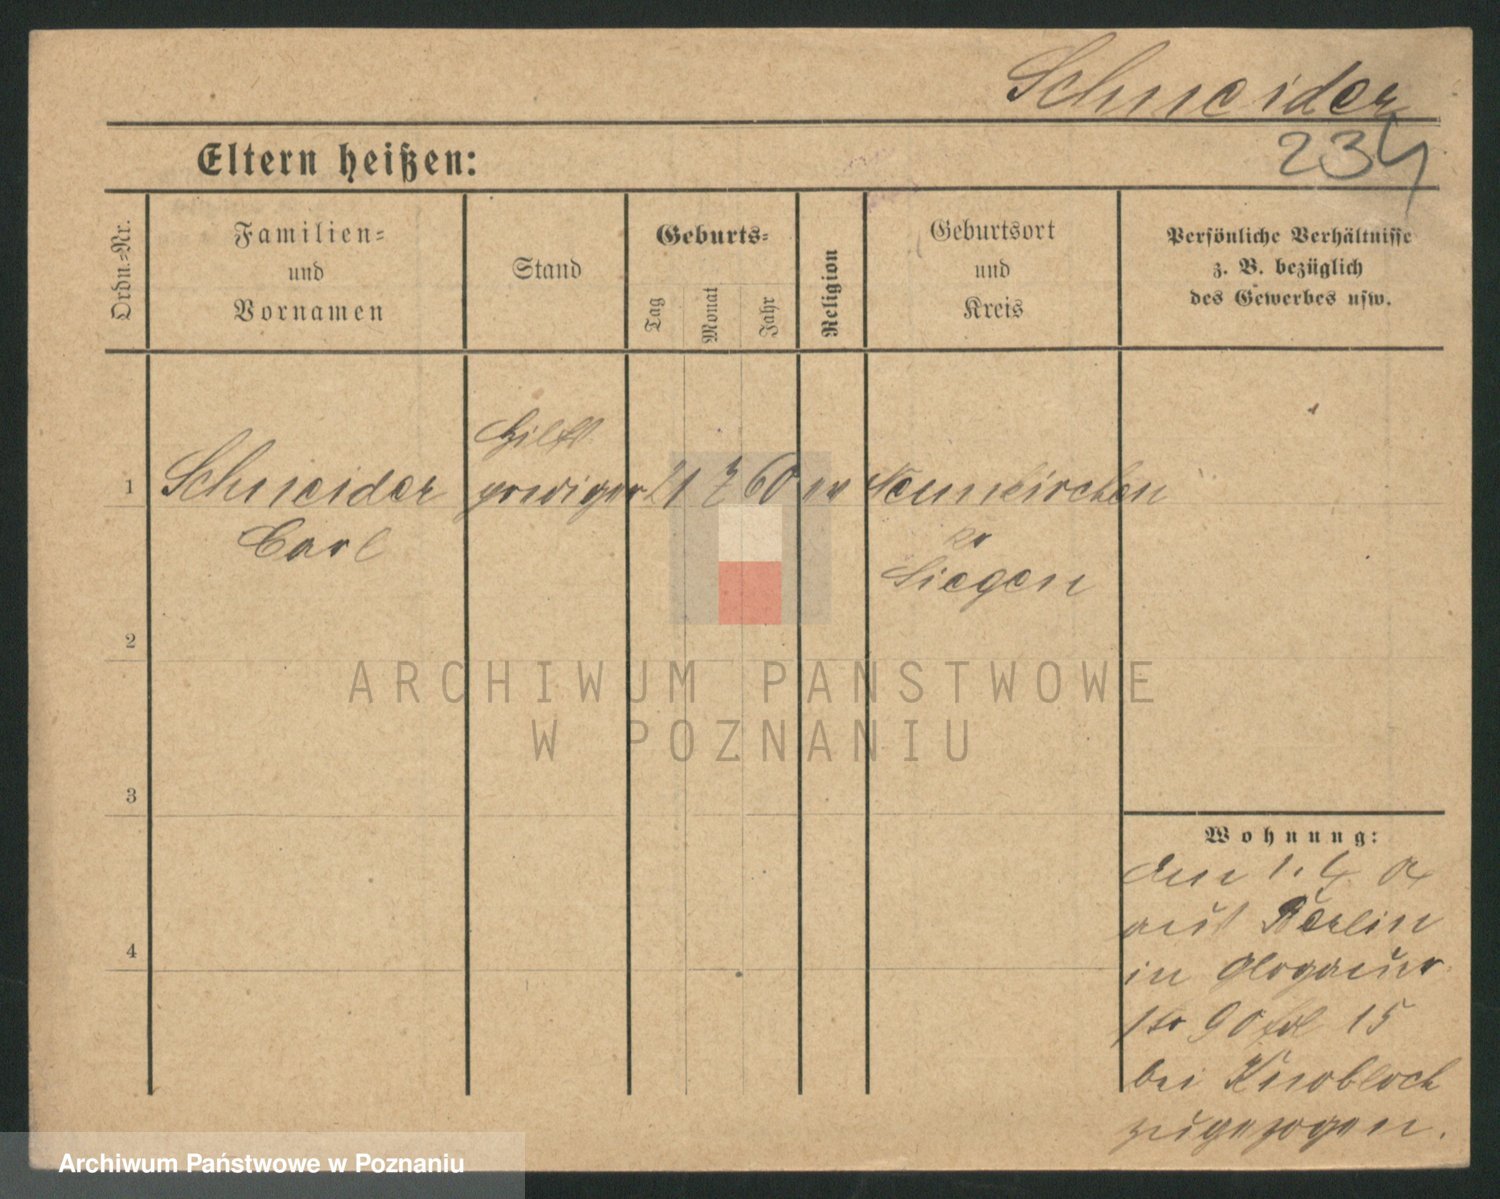 Schneider
234
Eltern heißen:
Ordn.-Nr.
Familien-
und
Vornamen
Stand
Geburts-
Tag
Monat
Jahr
Religion
Geburtsort
und
Kreis
Persönliche Verhältnisse
z. B. bezüglich
des Gewerbes usw.
1
Schneider
Carl
Hilfs
prediger
21
60
ev
Neunkirchen
Kr
Siegen
2
3
4
Wohnung:
den 1. 4.
aus Berlin
in Glogauer
str 90 15
bei Knobloch
zugezogen.
ARCHIWUM PAŃSTWOWE
W POZNANIU
Archiwum Państwowe w Poznaniu